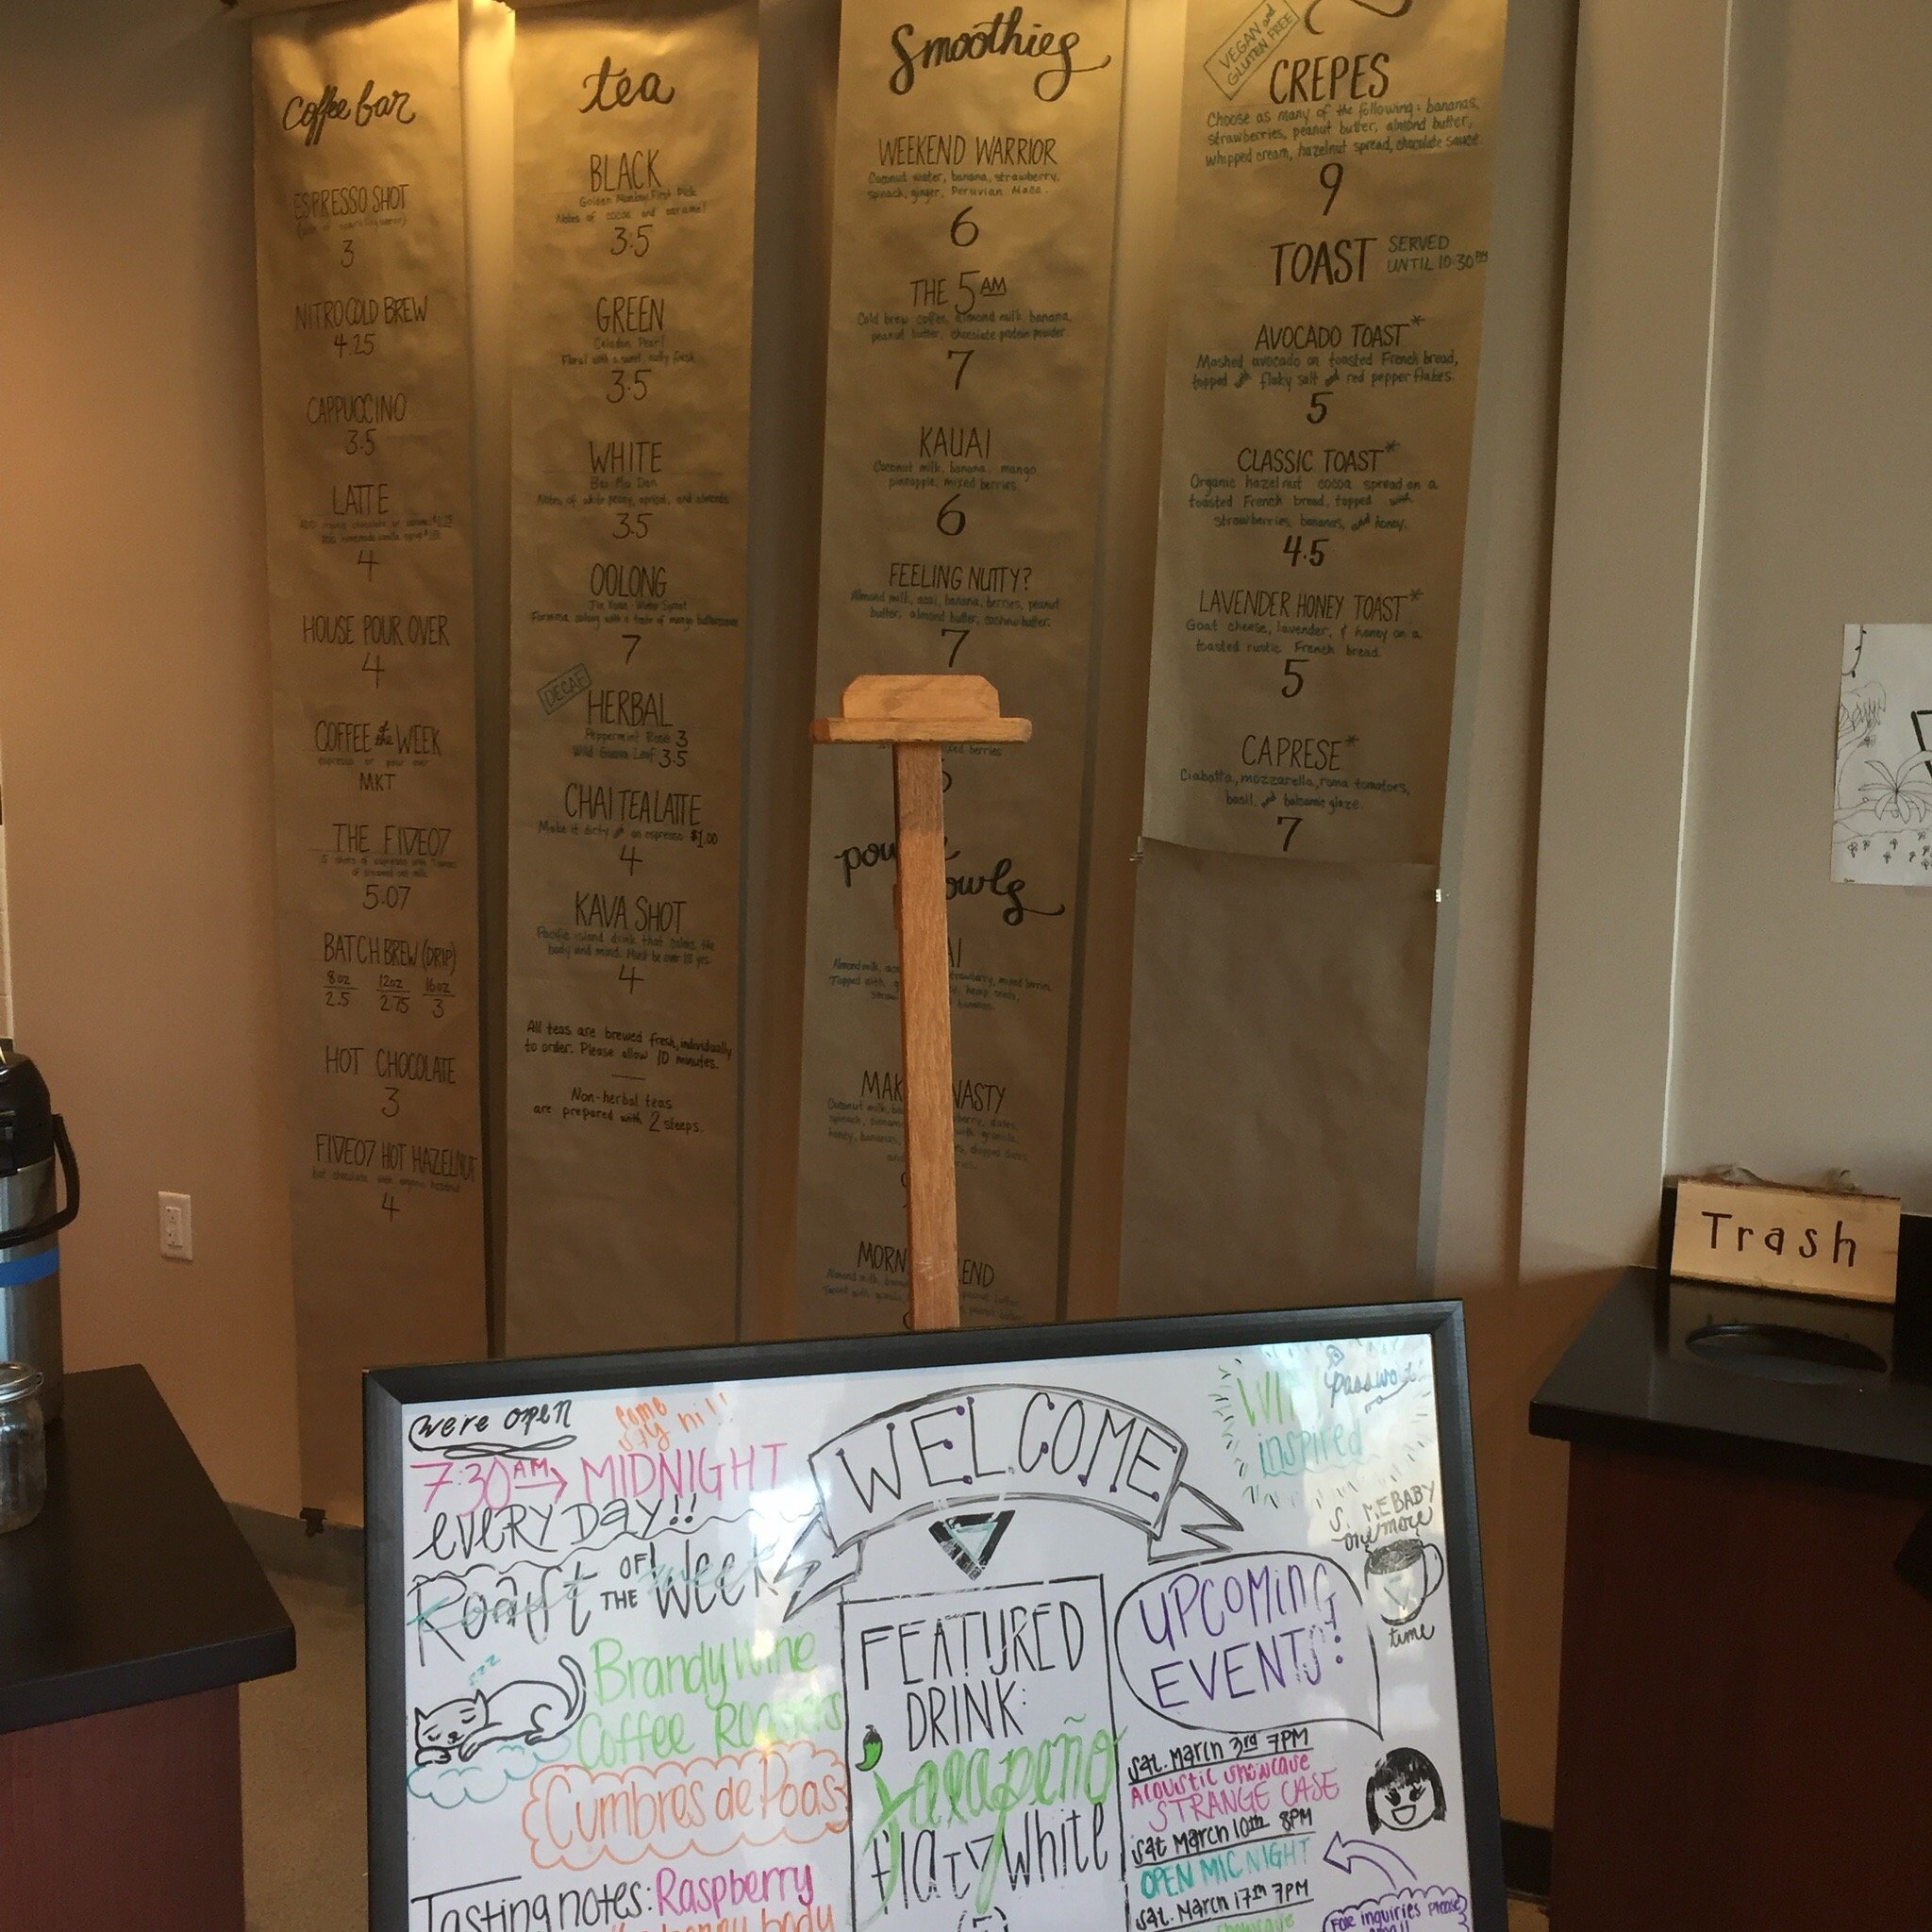 coffee bar
ESPRESSO SHOT
3
NITRO COLD BREW
4.25
CAPPUCCINO
3.5
LATTE
4
HOUSE POUR OVER
4
COFFEE of the WEEK
espresso or pour over
MKT
THE FIVE07
5.07
BATCH BREW (DRIP)
8oz 12oz 16oz
2.5 2.75 3
HOT CHOCOLATE
3
FIVE07 HOT HAZELNUT
4
tea
BLACK
Golden Monkey First Pick
Notes of cocoa and caramel
3.5
GREEN
Celadon Pearl
Floral with a sweet, nutty finish.
3.5
WHITE
Bai Mu Dan
Notes of white peony, apricot, and almonds
3.5
OOLONG
7
DECAF
HERBAL
Peppermint Rose 3
Wild Guava Leaf 3.5
CHAI TEA LATTE
Make it dirty with an espresso $1.00
4
KAVA SHOT
Pacific island drink that calms the
body and mind. Must be over 18 yrs.
4
All teas are brewed fresh, individually
to order. Please allow 10 minutes.
Non-herbal teas
are prepared with 2 steeps.
Smoothies
WEEKEND WARRIOR
Coconut water, banana, strawberry,
spinach, ginger, Peruvian Maca.
6
THE 5AM
Cold brew coffee, almond milk, banana,
peanut butter, chocolate protein powder
7
KAUAI
Coconut milk, banana, mango
pineapple, mixed berries.
6
FEELING NUTTY?
Almond milk, acai, banana, berries, peanut
butter, almond butter, cashew butter.
7
berries
VEGAN and
GLUTEN FREE
CREPES
Choose as many of the following: bananas,
strawberries, peanut butter, almond butter,
whipped cream, hazelnut spread, chocolate sauce.
9
TOAST SERVED
UNTIL 10:30PM
AVOCADO TOAST*
Mashed avocado on toasted French bread,
topped with flaky salt and red pepper flakes.
5
CLASSIC TOAST*
Organic hazelnut cocoa spread on a
toasted French bread, topped with
strawberries, bananas, and honey.
4.5
LAVENDER HONEY TOAST*
Goat cheese, lavender, & honey on a
toasted rustic French bread.
5
CAPRESE*
Ciabatta, mozzarella, roma tomatoes,
basil, and balsamic glaze.
7
Trash
We're open
come say hi!!
7:30AM → MIDNIGHT
everyday!!
Roast OF THE Week
zzz
Brandywine
Coffee Roasters
Cumbres de Poas
Tasting notes: Raspberry
body
WELCOME
FEATURED
DRINK:
Jalapeño
flat white
inspired
BABY
one more
time
UPCOMING
EVENTS:
Sat. March 3rd 7PM
Acoustic Showcase
STRANGE CASE
Sat March 10th 8PM
OPEN MIC NIGHT
Sat. March 17th 7PM
Showcase
For inquiries please